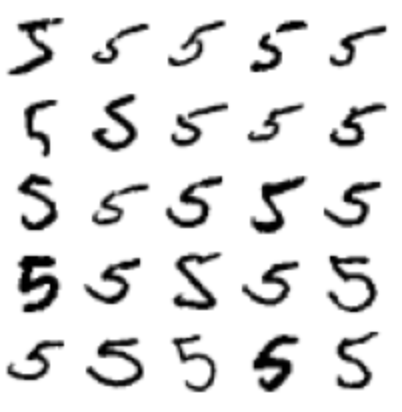 5 5 5 5 5
5 5 5 5 5
5 5 5 5 5
5 5 5 5 5
5 5 5 5 5